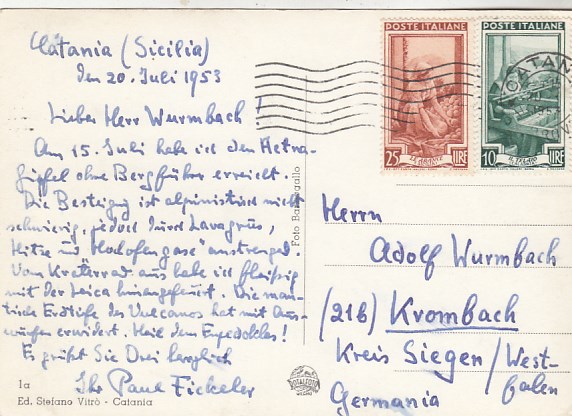 Catania (Sicilia)
den 20. Juli 1953
Lieber Herr Wurmbach!
Am 15. Juli habe ich den Aetna-
gipfel ohne Bergführer erreicht.
Die Besteigung ist alpinistisch nicht
schwierig, jedoch durch Lavagrus,
Hitze und "Hochofengase" anstrengend.
Vom Kraterrand aus habe ich fleißig
mit der Leica hineingefeuert. Die
des Vulcanos hat mit Aus-
würfen erwidert. Heil dem Empedokles!
Es grüßt Sie Drei herzlich
Ihr Paul Fickeler
1a
Ed. Stefano Vitrò - Catania
Foto Battegallo
POSTE ITALIANE
25 LIRE
LE ARANCE
POSTE ITALIANE
10 LIRE
IL TELAIO
CATANIA
Herrn
Adolf Wurmbach
(21b) Krombach
Kreis Siegen/West-
falen
Germania